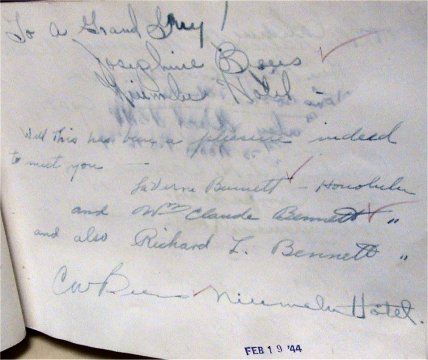 To a Grand Guy!
Josephine Beers
Niumalu Hotel
Well this has been a pleasure indeed
to meet you —
LaVerne Bennett - Honolulu
and Wm Claude Bennett "
and also Richard L. Bennett "
CW Beers Niumalu Hotel.
FEB 19 '44